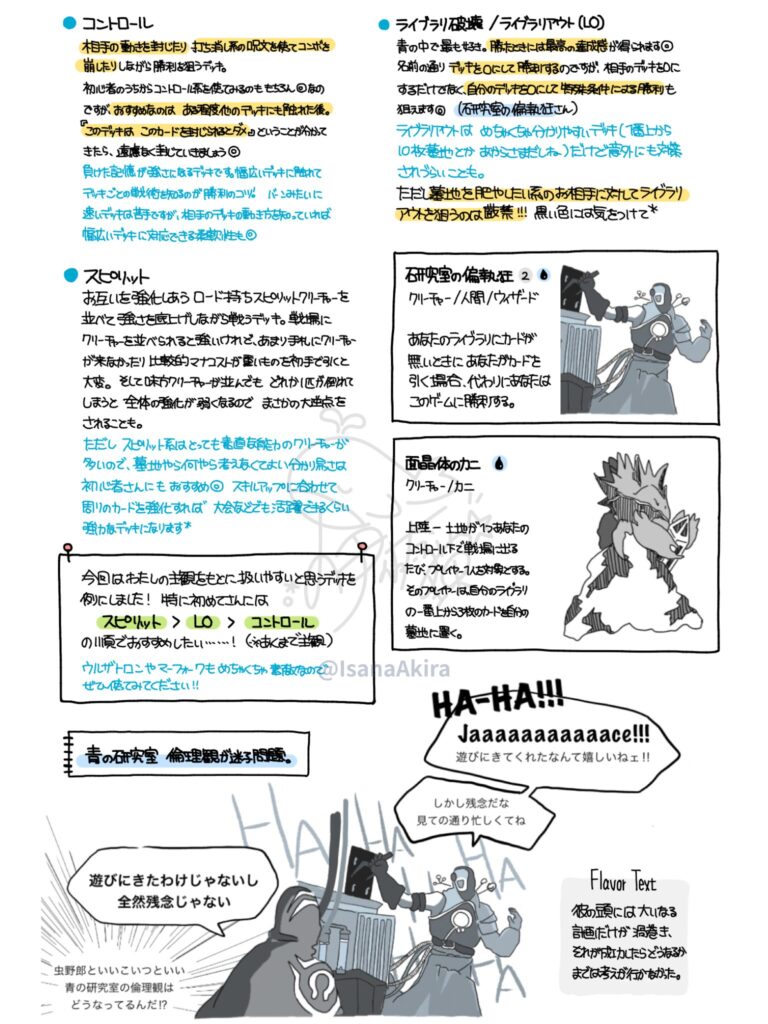 コントロール
相手の動きを封じたり 打ち消し系の呪文を使てコンボを
崩したりしながら勝利を狙うデッキ。
初心者のうちからコントロール系を使てみるのも もちろん◎なの
ですが、おすすめなのは ある程度他のデッキにも触れた後。
「このデッキは このカードを封じられるとダメ」ということが分かて
きたら、遠慮なく封じていきましょう◎
負けた記憶が強さになるデッキです。幅広いデッキに触れて
デッキごとの戦術を知るのが勝利のコツ。バーンみたいに
速いデッキは苦手ですが、相手のデッキの動き方を知っていれば
幅広いデッキに対応できる柔軟性も◎
スピリット
お互いを強化しあう ロード持ちスピリットクリーチャーを
並べて強さを底上げしながら戦うデッキ。戦場に
クリーチャーを並べられると強いけれど、あまり手札にクリーチャー
が来なかったり 比較的マナコストが重いものを初手で引くと
大変。そして味方クリーチャーが並んでも どれか1匹が倒れて
しまうと 全体の強化が弱くなるので まさかの大逆点を
されることも。
ただし スピリット系はとっても素直な能力のクリーチャーが
多いので、墓地やら何やら考えなくてよい分かり易さは
初心者さんにも おすすめ◎ スキルアップに合わせて
周りのカードを強化すれば 大会などでも活躍できるくらい
強力なデッキになります*
今回はわたしの主観をもとに扱いやすいと思うデッキを
例にしました! 特に初めてさんには
スピリット > LO > コントロール
の順でおすすめしたい……! (※あくまで主観)
ウルザトロンやマーフォークも めちゃくちゃ 素敵なので
ぜひ使てみてください!!
ライブラリ破壊 /ライブラリアウト(LO)
青の中で最も好き。勝たときには最高の達成感が得られます◎
名前の通り デッキを0にして勝利するのですが、相手のデッキを0に
するだけでなく、自分のデッキを0にして 特殊条件による勝利も
狙えます◎ (研究室の偏執狂さん)
ライブラリアウトは めちゃくちゃ分かりやすいデッキ(1番上から
10枚墓地とか あからさまだしね)だけど意外にも対策
されづらいことも。
ただし墓地を肥やしたい系のお相手に対してライブラリ
アウトを狙うのは厳禁!!! 黒い色には気をつけて*
研究室の偏執狂 2
クリーチャー/人間/ウィザード
あなたのライブラリにカードが
無いときに あなたがカードを
引く場合、代わりにあなたは
このゲームに勝利する。
面晶体のカニ
クリーチャー/カニ
上陸 ー 土地が1つあなたの
コントロール下で戦場に出る
たび、プレイヤー1人を対象とする。
そのプレイヤーは自分のライブラリ
の一番上から3枚のカードを自分の
墓地に置く。
@IsanaAkira
青の研究室 倫理観が迷子問題。
HA-HA!!!
Jaaaaaaaaaaaace!!!
遊びにきてくれたなんて嬉しいねェ!!
しかし残念だな
見ての通り忙しくてね
HA HA HA HA HA HA
遊びにきたわけじゃないし
全然残念じゃない
虫野郎といいこいつといい
青の研究室の倫理観は
どうなってるんだ!?
Flavor Text
彼の頭には大いなる
計画だけが渦巻き、
それが成功したらどうなるか
までは考えが行かなかた。